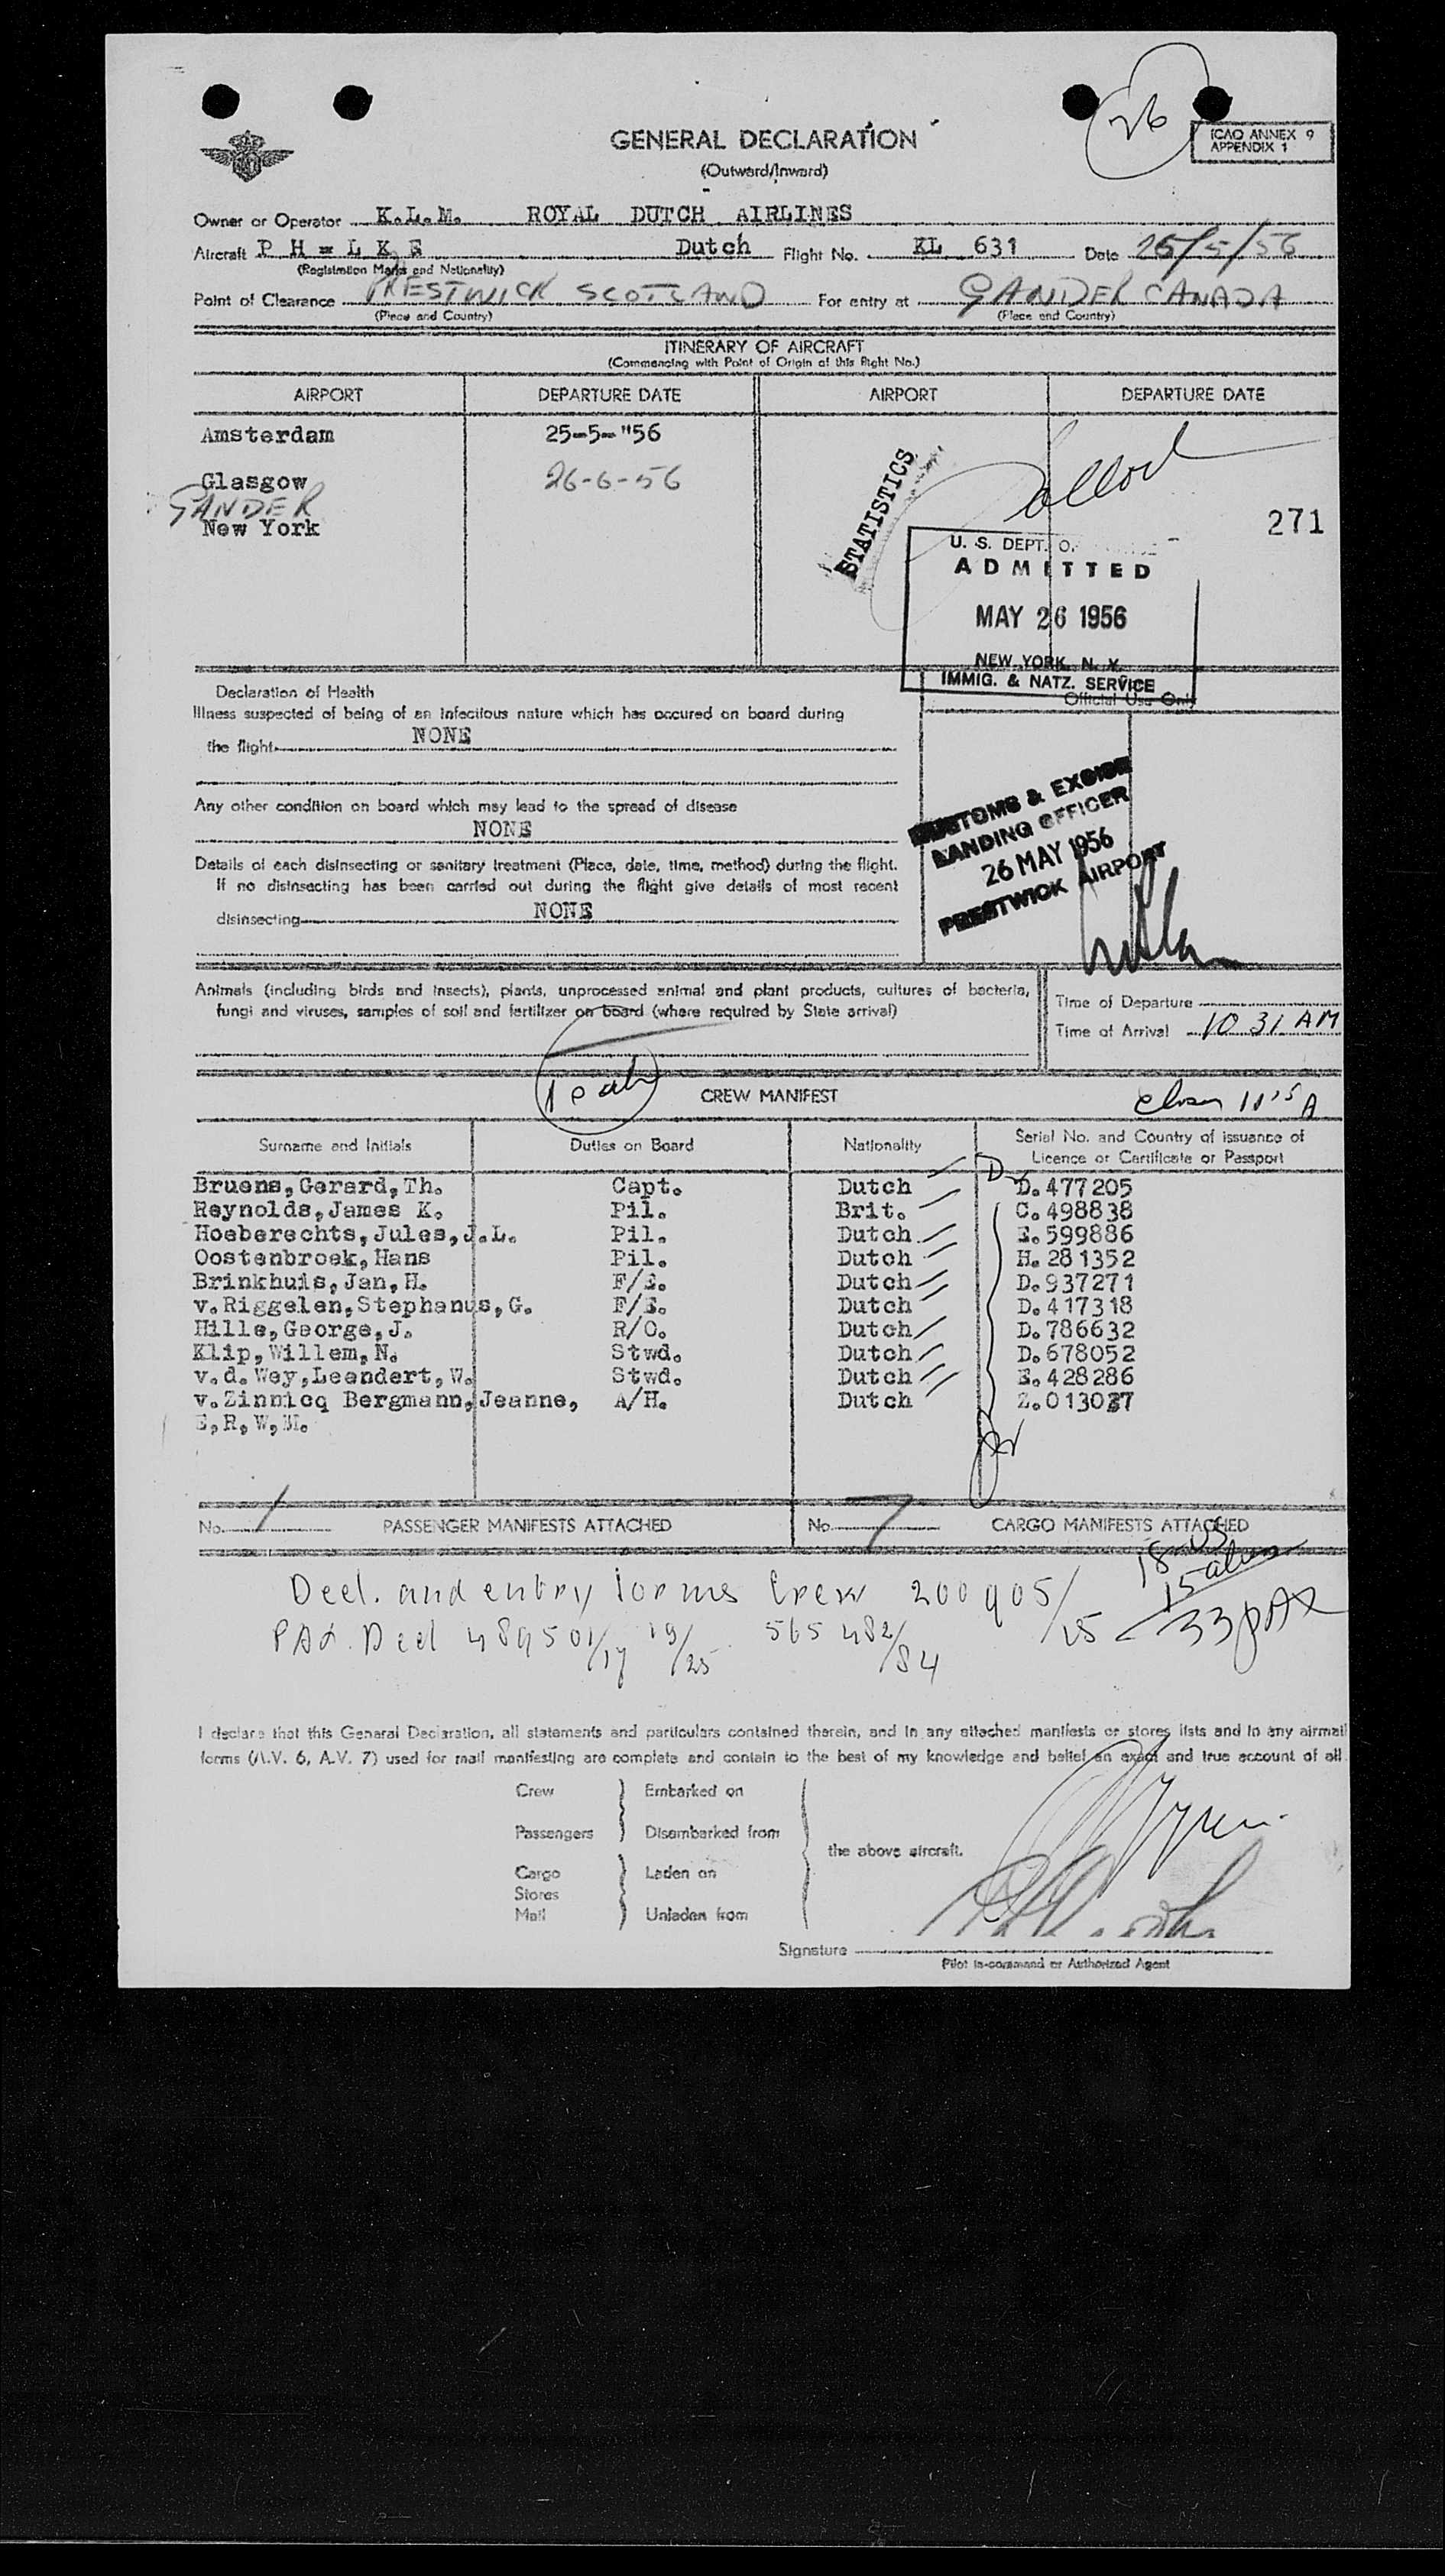 26
ICAO ANNEX 9
APPENDIX 1
GENERAL DECLARATION
(Outward/Inward)
Owner or Operator K.L.M. ROYAL DUTCH AIRLINES
Aircraft P H = L K E Dutch Flight No. KL 631 Date 26/5/56
(Registration Marks and Nationality)
Point of Clearance PRESTWICK SCOTLAND For entry at GANDER CANADA
(Place and Country) (Place and Country)
ITINERARY OF AIRCRAFT
(Commencing with Point of Origin of this flight No.)
AIRPORT DEPARTURE DATE AIRPORT DEPARTURE DATE
Amsterdam 25-5-"56
Glasgow 26-6-56
GANDER
New York
STATISTICS
271
U. S. DEPT. O.
ADMITTED
MAY 26 1956
NEW YORK, N. Y.
IMMIG. & NATZ. SERVICE
Official Use Only
Declaration of Health
Illness suspected of being of an infectious nature which has occured on board during
the flight NONE
Any other condition on board which may lead to the spread of disease
NONE
Details of each disinsecting or sanitary treatment (Place, date, time, method) during the flight.
If no disinsecting has been carried out during the flight give details of most recent
disinsecting NONE
CUSTOMS & EXCISE
LANDING OFFICER
26 MAY 1956
PRESTWICK AIRPORT
Animals (including birds and insects), plants, unprocessed animal and plant products, cultures of bacteria,
fungi and viruses, samples of soil and fertilizer on board (where required by State arrival)
Time of Departure
Time of Arrival 10 31 AM
CREW MANIFEST
Surname and Initials Duties on Board Nationality Serial No. and Country of issuance of
Licence or Certificate or Passport
Bruens,Gerard,Th. Capt. Dutch D.477205
Reynolds,James K. Pil. Brit. C.498838
Hoeberechts,Jules,J.L. Pil. Dutch E.599886
Oostenbroek,Hans Pil. Dutch H.281352
Brinkhuis,Jan,H. F/E. Dutch D.937271
v.Riggelen,Stephanus,G. F/E. Dutch D.417318
Hille,George,J. R/O. Dutch D.786632
Klip,Willem,N. Stwd. Dutch D.678052
v.d.Wey,Leendert,W. Stwd. Dutch E.428286
v.Zinnicq Bergmann,Jeanne, A/H. Dutch Z.013037
E,R,W,M.
No. 1 PASSENGER MANIFESTS ATTACHED No. 7 CARGO MANIFESTS ATTACHED
18-US
15 aliens
33 PAX
Decl. and entry forms Crew 200905/25
PAX. Decl 489501/17 19/25 565482/84
I declare that this General Declaration, all statements and particulars contained therein, and in any attached manifests or stores lists and in any airmail
forms (A.V. 6, A.V. 7) used for mail manifesting are complete and contain to the best of my knowledge and belief an exact and true account of all
Crew Embarked on
Passengers Disembarked from
the above aircraft.
Cargo Laden on
Stores
Mail Unladen from
Signature
Pilot in-command or Authorized Agent